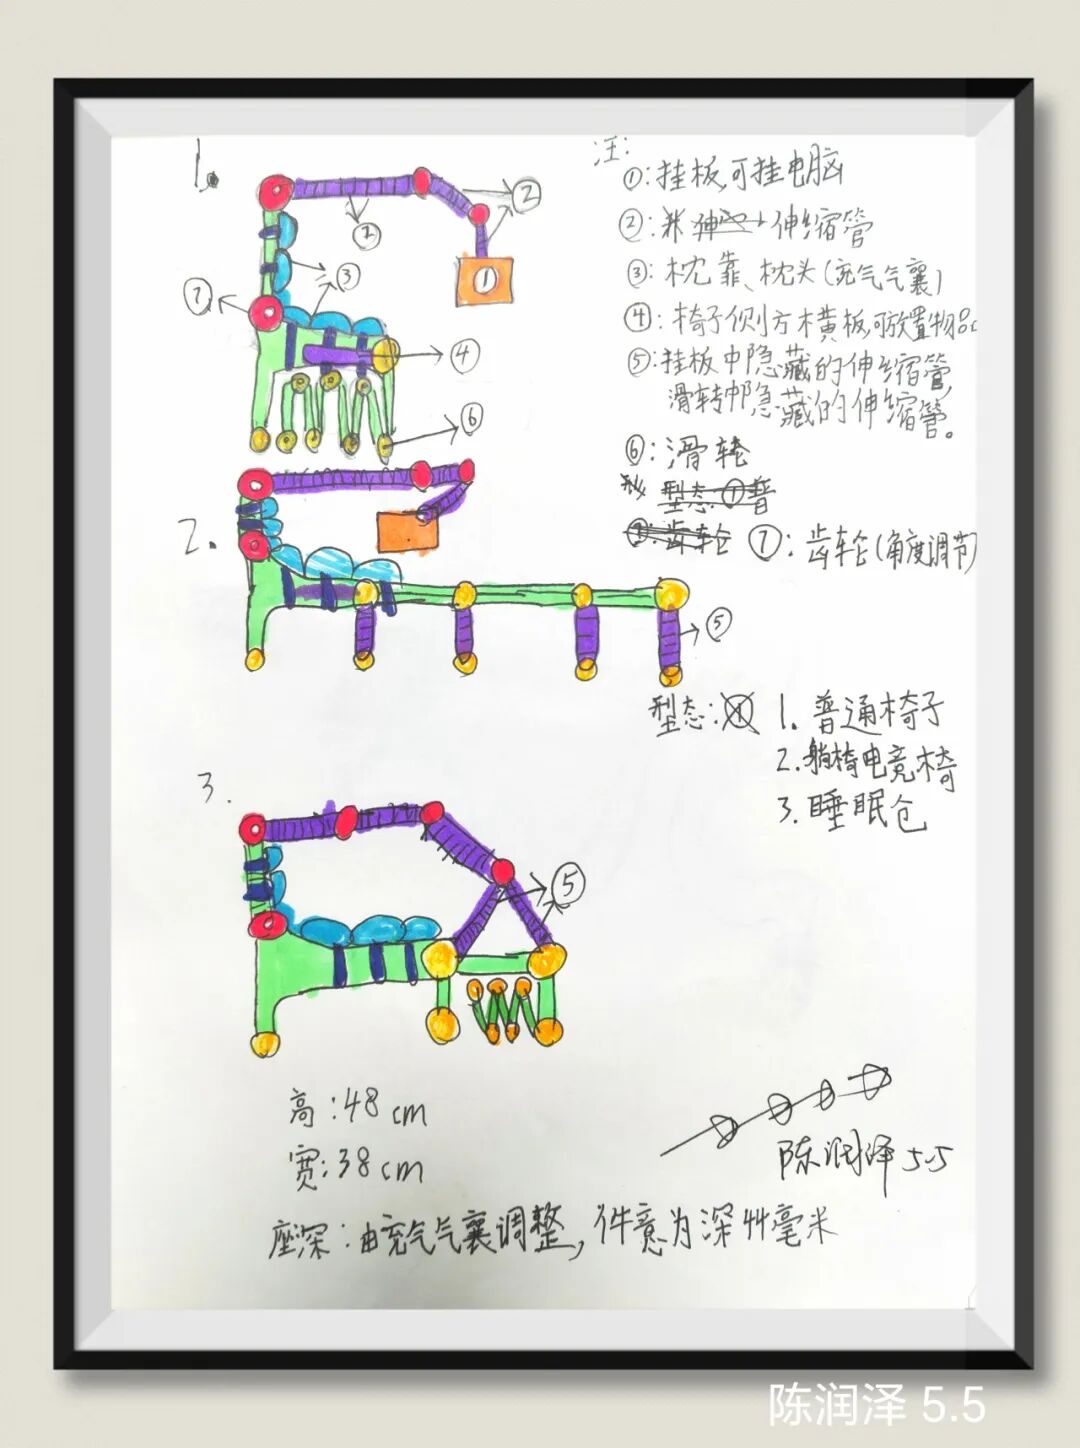 1.
②
②
①
③
⑦
④
⑥
注:
①:挂板,可挂电脑
②: 伸缩管
③:枕靠、枕头(充气气襄)
④:椅子侧方横板,可放置物品
⑤:挂板中隐藏的伸缩管,
滑转中隐藏的伸缩管。
⑥:滑轮
型态:①普
⑦:齿轮 ⑦:齿轮(角度调节)
2.
⑤
型态: 1.普通椅子
2.躺椅电竞椅
3.睡眠仓
3.
⑤
高:48cm
宽:38cm
座深:由充气气襄调整,件意为深44毫米
陈润泽 5.5
陈润泽 5.5